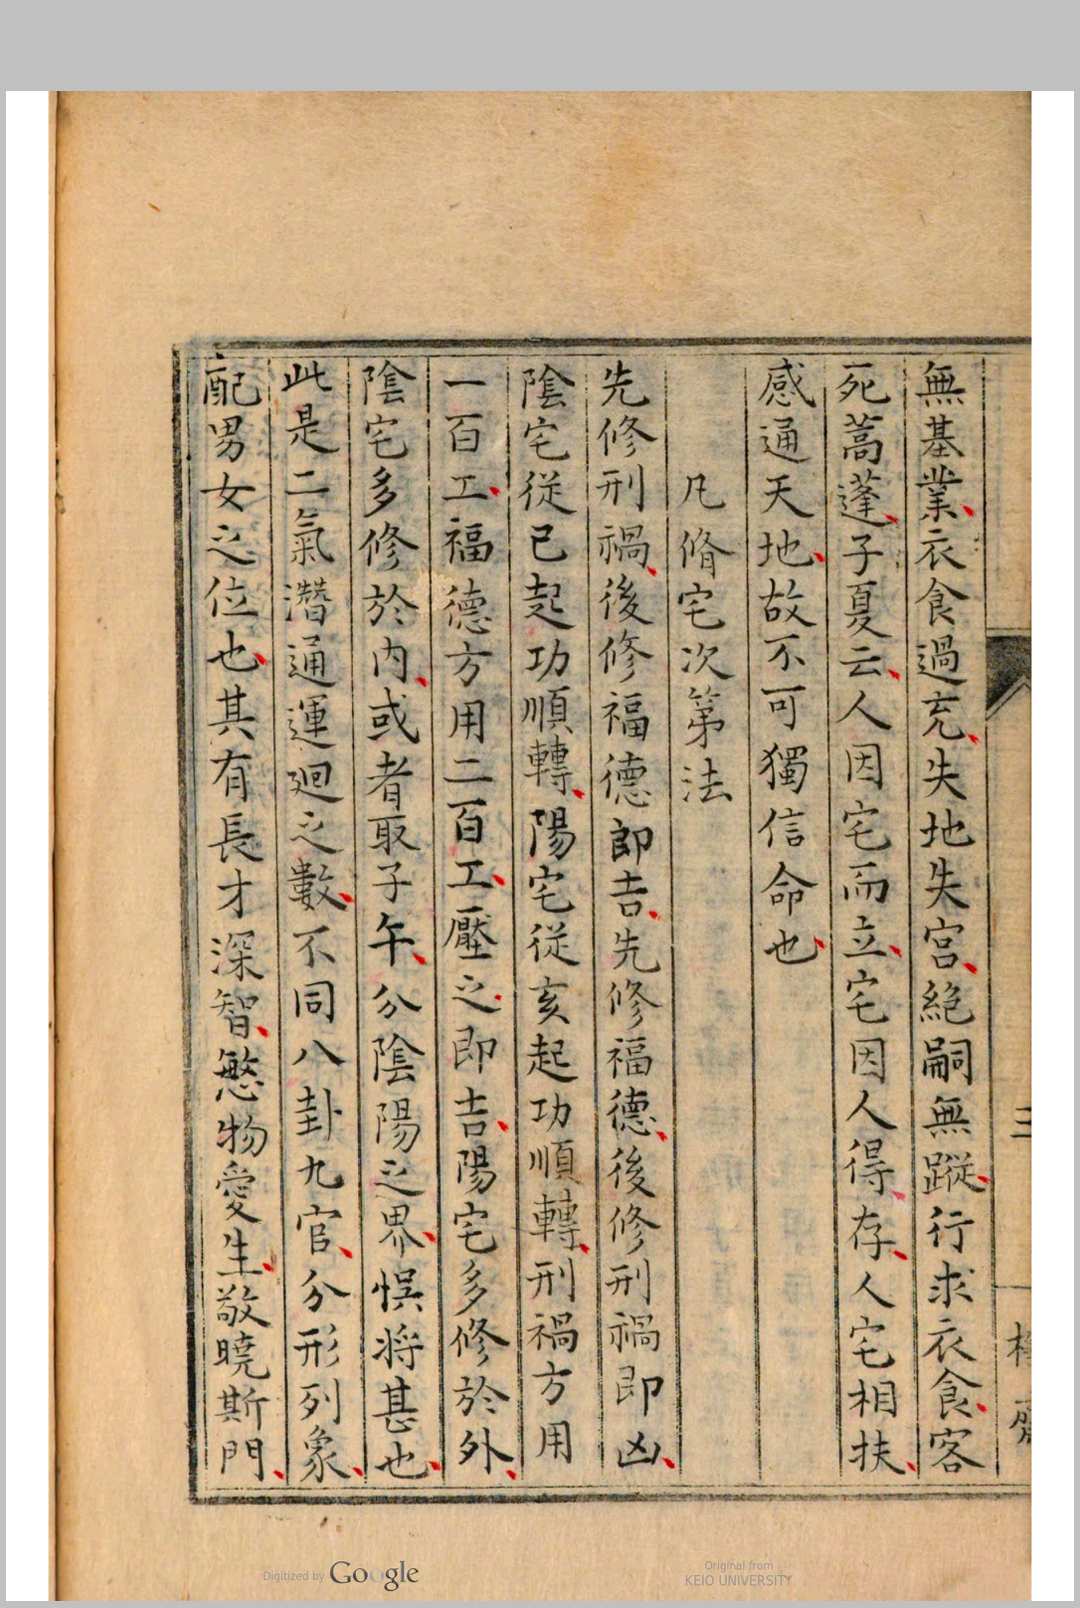 無基業衣食過充失地失宮絕嗣無蹤行求衣食客
死蒿蓬子夏云人因宅而立宅因人得存人宅相扶
感通天地故不可獨信命也
凡脩宅次第法
先修刑禍後修福德即吉先修福德後修刑禍即凶
陰宅從巳起功順轉陽宅從亥起功順轉刑禍方用
一百工福德方用二百工壓之即吉陽宅多修於外
陰宅多修於内或者取子午分陰陽之界悮将甚也
此是二氣潛通運廻之數不同八卦九宮分形列象
配男女之位也其有長才深智慜物愛生敬曉斯門
三
Digitized by Google
Original from
KEIO UNIVERSITY